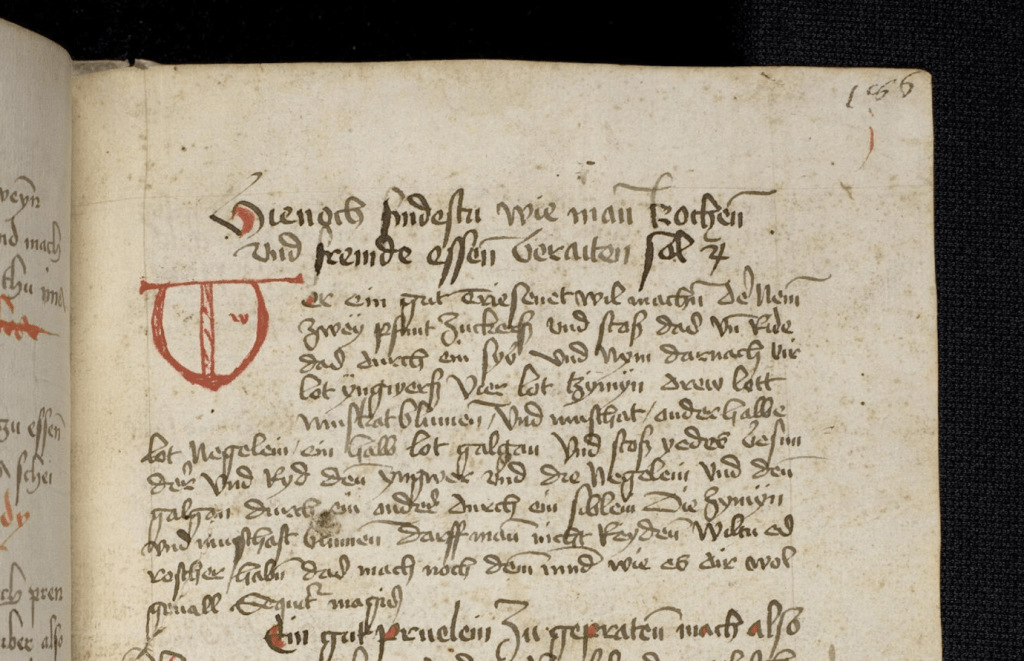 156
Hienoch findestu wie man kochen̄
vnd fremde essen̄ beraiten sol
w
er ein gut Triesenet wil machn̄ der Nem
zwey pfunt Zuckerß vnd stoß das vn̄ Ride
das durch ein syb vnd Nym darnach vir
lot yngwerß vier lot tzymyn drew lott
muskatblumen vnd muschat / anderhalbe
lot Negelein / ein halb lot galgan vnd stoß yedes besun
der vnd Ryd den̄ yngwer vnd die Negelein vnd den̄
galgan durch ein ander durch ein siblein Die zymyn
vnd muschast blumen̄ darff man̄ nicht Reyden̄ Wiltu es
roscher habn̄ das mach noch dem mud wie es dir wol
geuall Sequitur
Ein gut pruelein Zu gepraten̄ mach also
weyn̄
nd mach
thu
zu essen̄
schei
dy
ch pren
ber also